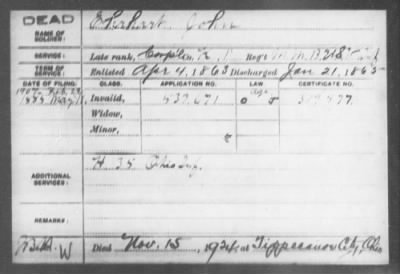 DEAD
NAME OF SOLDIER:
Ehrhart John
SERVICE:
Late rank, Corpl Co. Reg't
TERM OF SERVICE:
Enlisted Apr 4, 1863 Discharged Jan 21, 1865
DATE OF FILING. CLASS. APPLICATION NO. LAW CERTIFICATE NO.
1907- Feb. 23 Age
1885 May 11, Invalid, 539,671
Widow,
Minor,
ADDITIONAL SERVICES:
H. 35 Ohio Inf.
REMARKS:
Died Nov. 15, 1924, at Tippecanoe City, Ohio